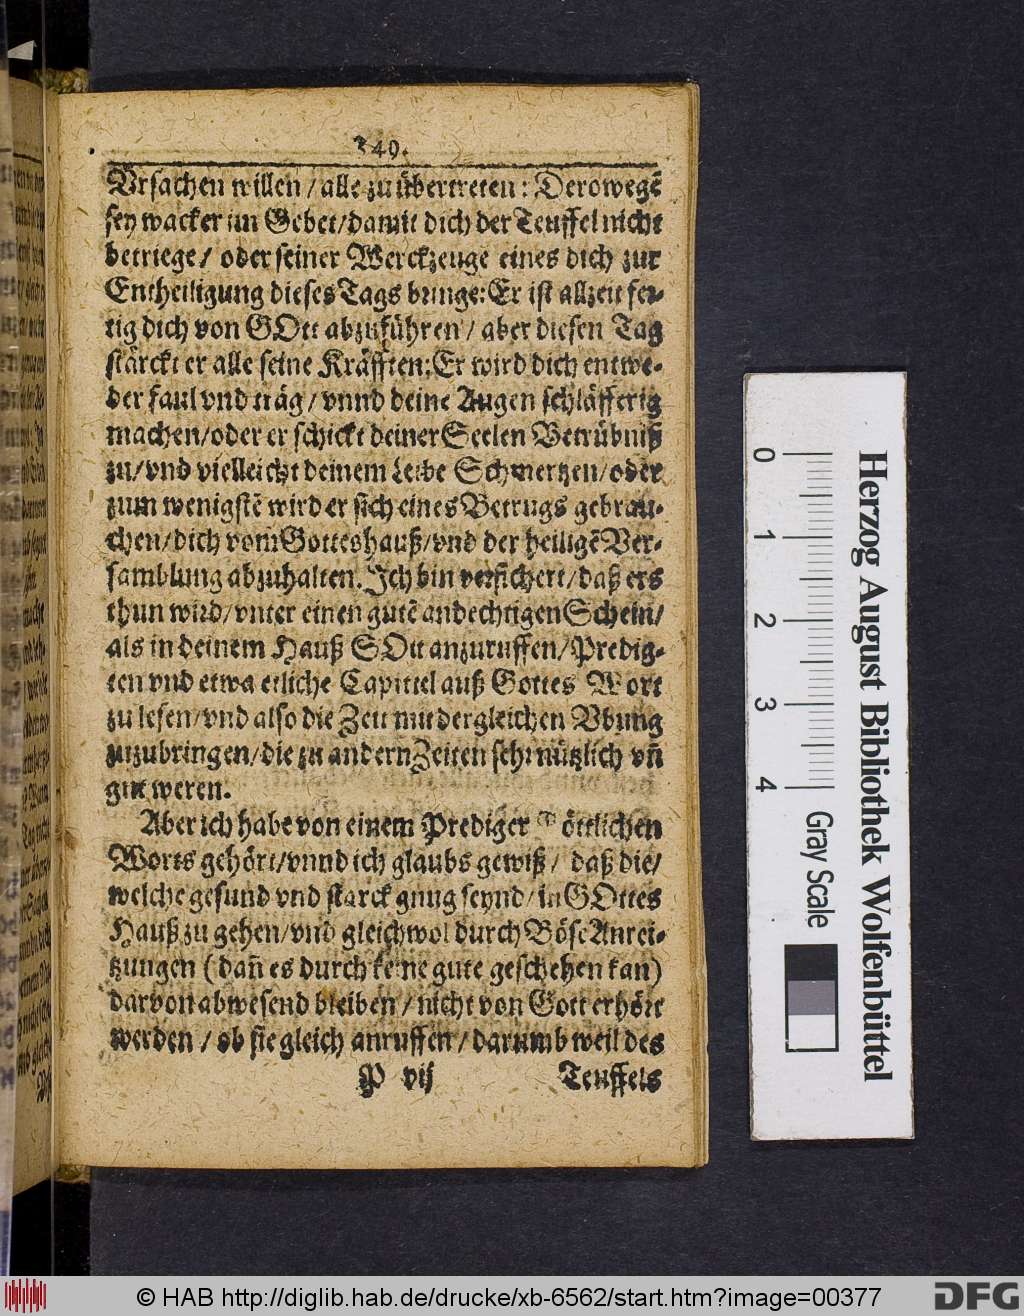 349.
Vrsachen willen / alle zu übertreten: Derowegẽ
sey wacker im Gebet / damit dich der Teuffel nicht
betriege / oder seiner Werckzeuge eines dich zur
Entheiligung dieses Tags bringe: Er ist allzeit fer-
tig dich von GOtt abzuführen / aber diesen Tag
stärckt er alle seine Kräfften: Er wird dich entwe-
der faul vnd träg / vnnd deine Augen schläfferig
machen / oder er schickt deiner Seelen Betrübniß
zu / vnd vielleicht deinem Leibe Schmertzen / oder
zum wenigstẽ wird er sich eines Betrugs gebrau-
chen / dich vom Gotteshauß / vnd der heiligẽ Ver-
samblung abzuhalten. Ich bin versichert / daß ers
thun wird / vnter einen gutẽ andechtigen Schein /
als in deinem Hauß GOtt anzuruffen / Predig-
ten vnd etwa etliche Capittel auß Gottes Wort
zu lesen / vnd also die Zeit mit dergleichen Vbung
zuzubringen / die zu andern Zeiten sehr nützlich vñ
gut weren.
Aber ich habe von einem Prediger Göttlichen
Worts gehört / vnnd ich glaubs gewiß / daß die /
welche gesund vnd starck gnug seynd / in GOttes
Hauß zu gehen / vnd gleichwol durch Böse Anrei-
tzungen (dañ es durch keine gute geschehen kan)
darvon abwesend bleiben / nicht von Gott erhört
werden / ob sie gleich anruffen / darumb weil des
P vij Teuffels
0 1 2 3 4
Gray Scale
Herzog August Bibliothek Wolfenbüttel
© HAB http://diglib.hab.de/drucke/xb-6562/start.htm?image=00377
DFG